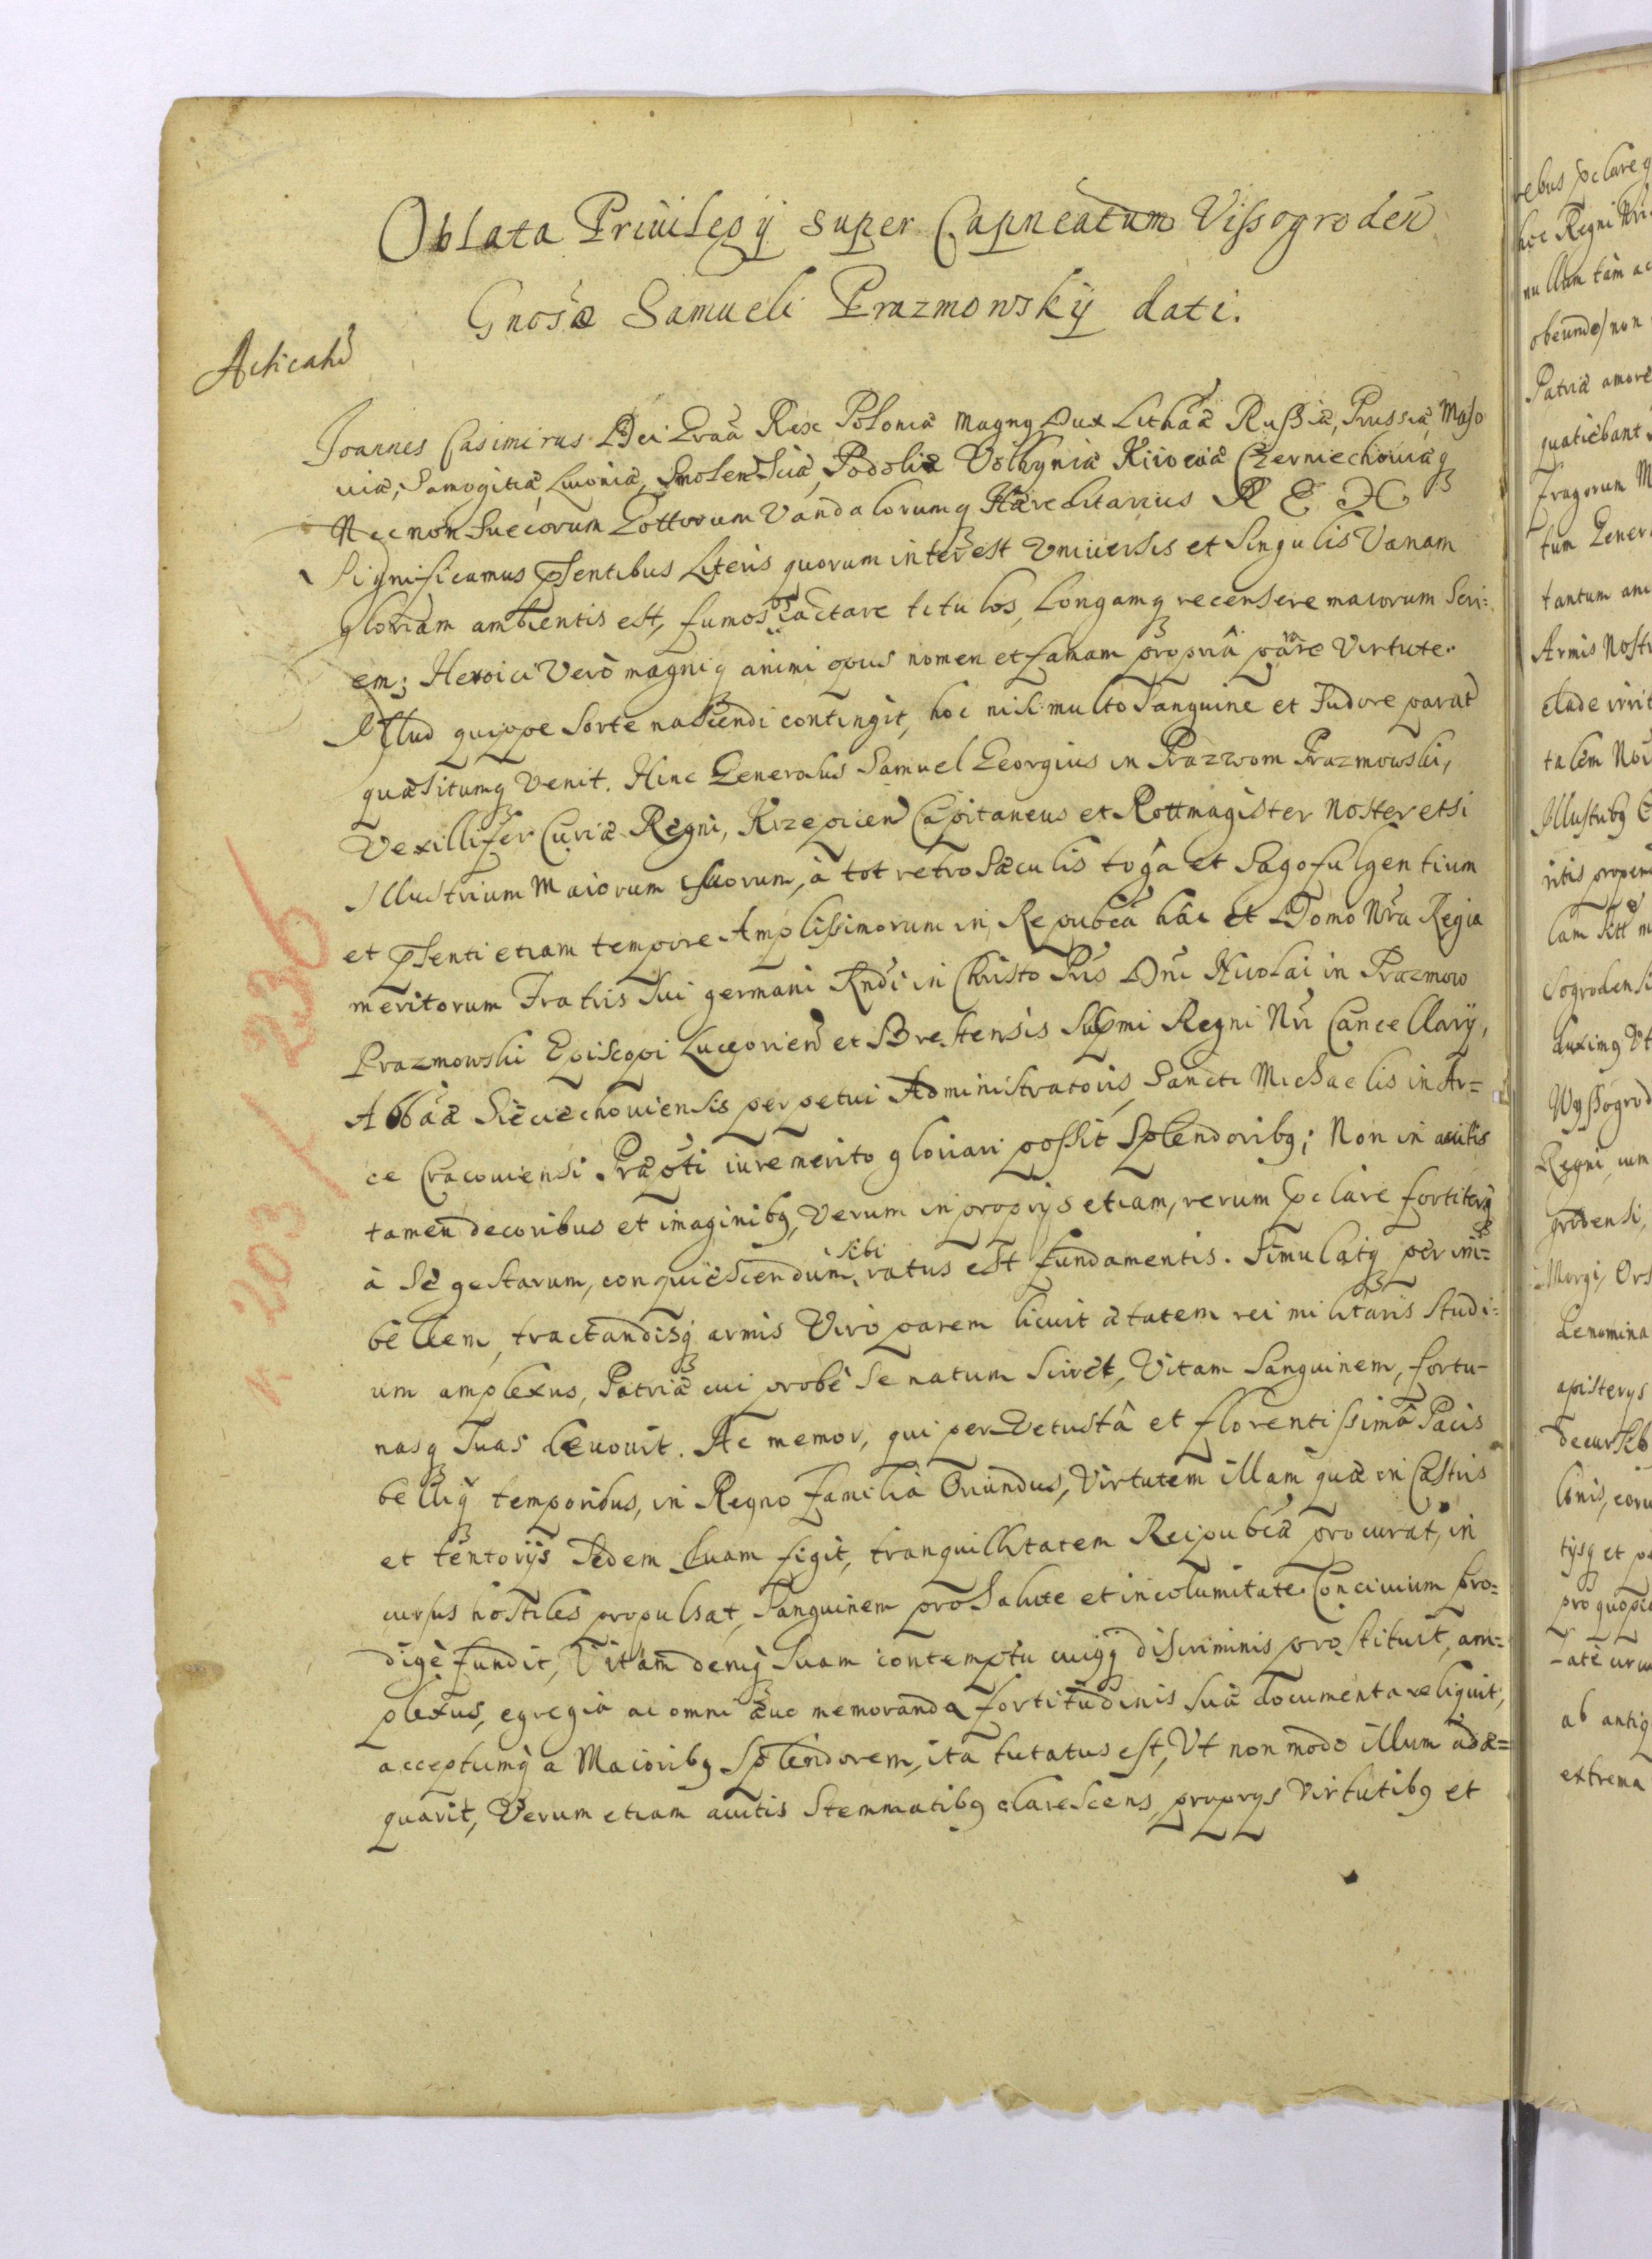 Oblata Priuilegij super Capneatum Vissogroden
Gnosæ Samueli Prazmowskij dati.
Joannes Casimirus Dei Graã Rex Poloniæ Magnq Dux Lithãæ Russiæ, Prussiæ, Maso
uiæ, Samogitiæ, Liuoniæ, Smolensciæ, Podoliæ Volhyniæ Kiiouiæ Czerniechouiæq
Necnon Suecorum Gottorum Vandalorumq Hæreditarius REX
Significamus pſentibus Literis quorum interest Vniuersis et Singulis Vanam
gloriam ambientis est, fumosos iactare titulos, Longamq recensere maiorum Seri=
em; Heroici Verò magniq animi opus nomen et famam propriâ parare Virtute.
Illud quippe sorte nascendi contingit, hoc nisi multo Sanguine et Sudore parat
quæsitumq Venit. Hinc Generosus Samuel Georgius in Prazmow Prazmowski,
Vexillifer Curiæ Regni, Krzepicen Capitaneus et Rottmagister Noster etsi
Illustrium Maiorum suorum, à tot retro Sæculis togâ et Sago fulgentium
et pſenti etiam tempore Amplissimorum in Repubcâ hâc et Domo Nrã Regia
meritorum Fratris Sui germani Rndi in Christo Pris Dni Nicolai in Prazmow
Prazmowski Episcopi Luceorien et Brestensis Supmi Regni Nri Cancellarij,
Abbãæ Sieciechouiensis perpetui Administratoris, Sancti Michaelis in Ar=
ce Cracouiensi Præpoti iure merito gloriari possit Splendoribq; Non in auitis
tamen decoribus et imaginibq, Verum in proprijs etiam, rerum pclare fortiterq
à Se gestarum, conquiescendum sibi ratus est fundamentis. Simulatq per im=
bellem, tractandisq armis Viro parem licuit ætatem rei militaris Studi=
um amplexus, Patriæ cui probè se natum sciret, Vitam Sanguinem, fortu-
nasq Suas deuouit. Ac memor, qui per Vetustâ et florentissimâ Pacis
belliq temporibus, in Regno familiâ Oriundus, Virtutem illam quæ in Castris
et tentorijs Sedem Suam figit, tranquillitatem Reipubcæ procurat, in
cursus hostiles propulsat, Sanguinem pro Salute et incolumitate Conciuium pro=
digè fundit, Vitam deniq Suam contemptu cuiqq discriminis prostituit, am=
plexus, egregia ac omni æuo memoranda fortitudinis Suæ documenta reliquit,
acceptumq a Maioribq Splendorem, ita tutatus est, Vt non modo illum adæ=
quarit, Verum etiam auitis Stemmatibq clarescens, proprijs Virtutibq et
203 / 236
nullam tam
Patriæ amore
quatiebant
tantum
Armis
propen
Regni, cum
grodensi,
Denomina
ab antiq
extrema